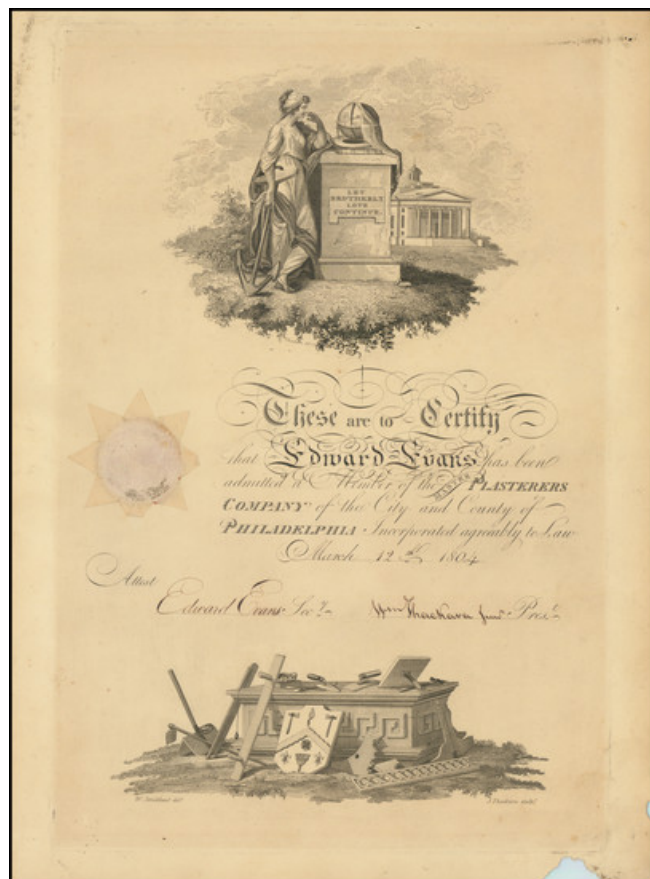 LET
BROTHERLY
LOVE
CONTINUE.
These are to Certify
that Edward Evans has been
admitted a Member of the MASTER PLASTERERS
COMPANY of the City and County of
PHILADELPHIA Incorporated agreeably to Law
March 12th 1804
Attest
Edward Evans Secy. Wm Thackara junr. Prest.
W. Strickland delt.